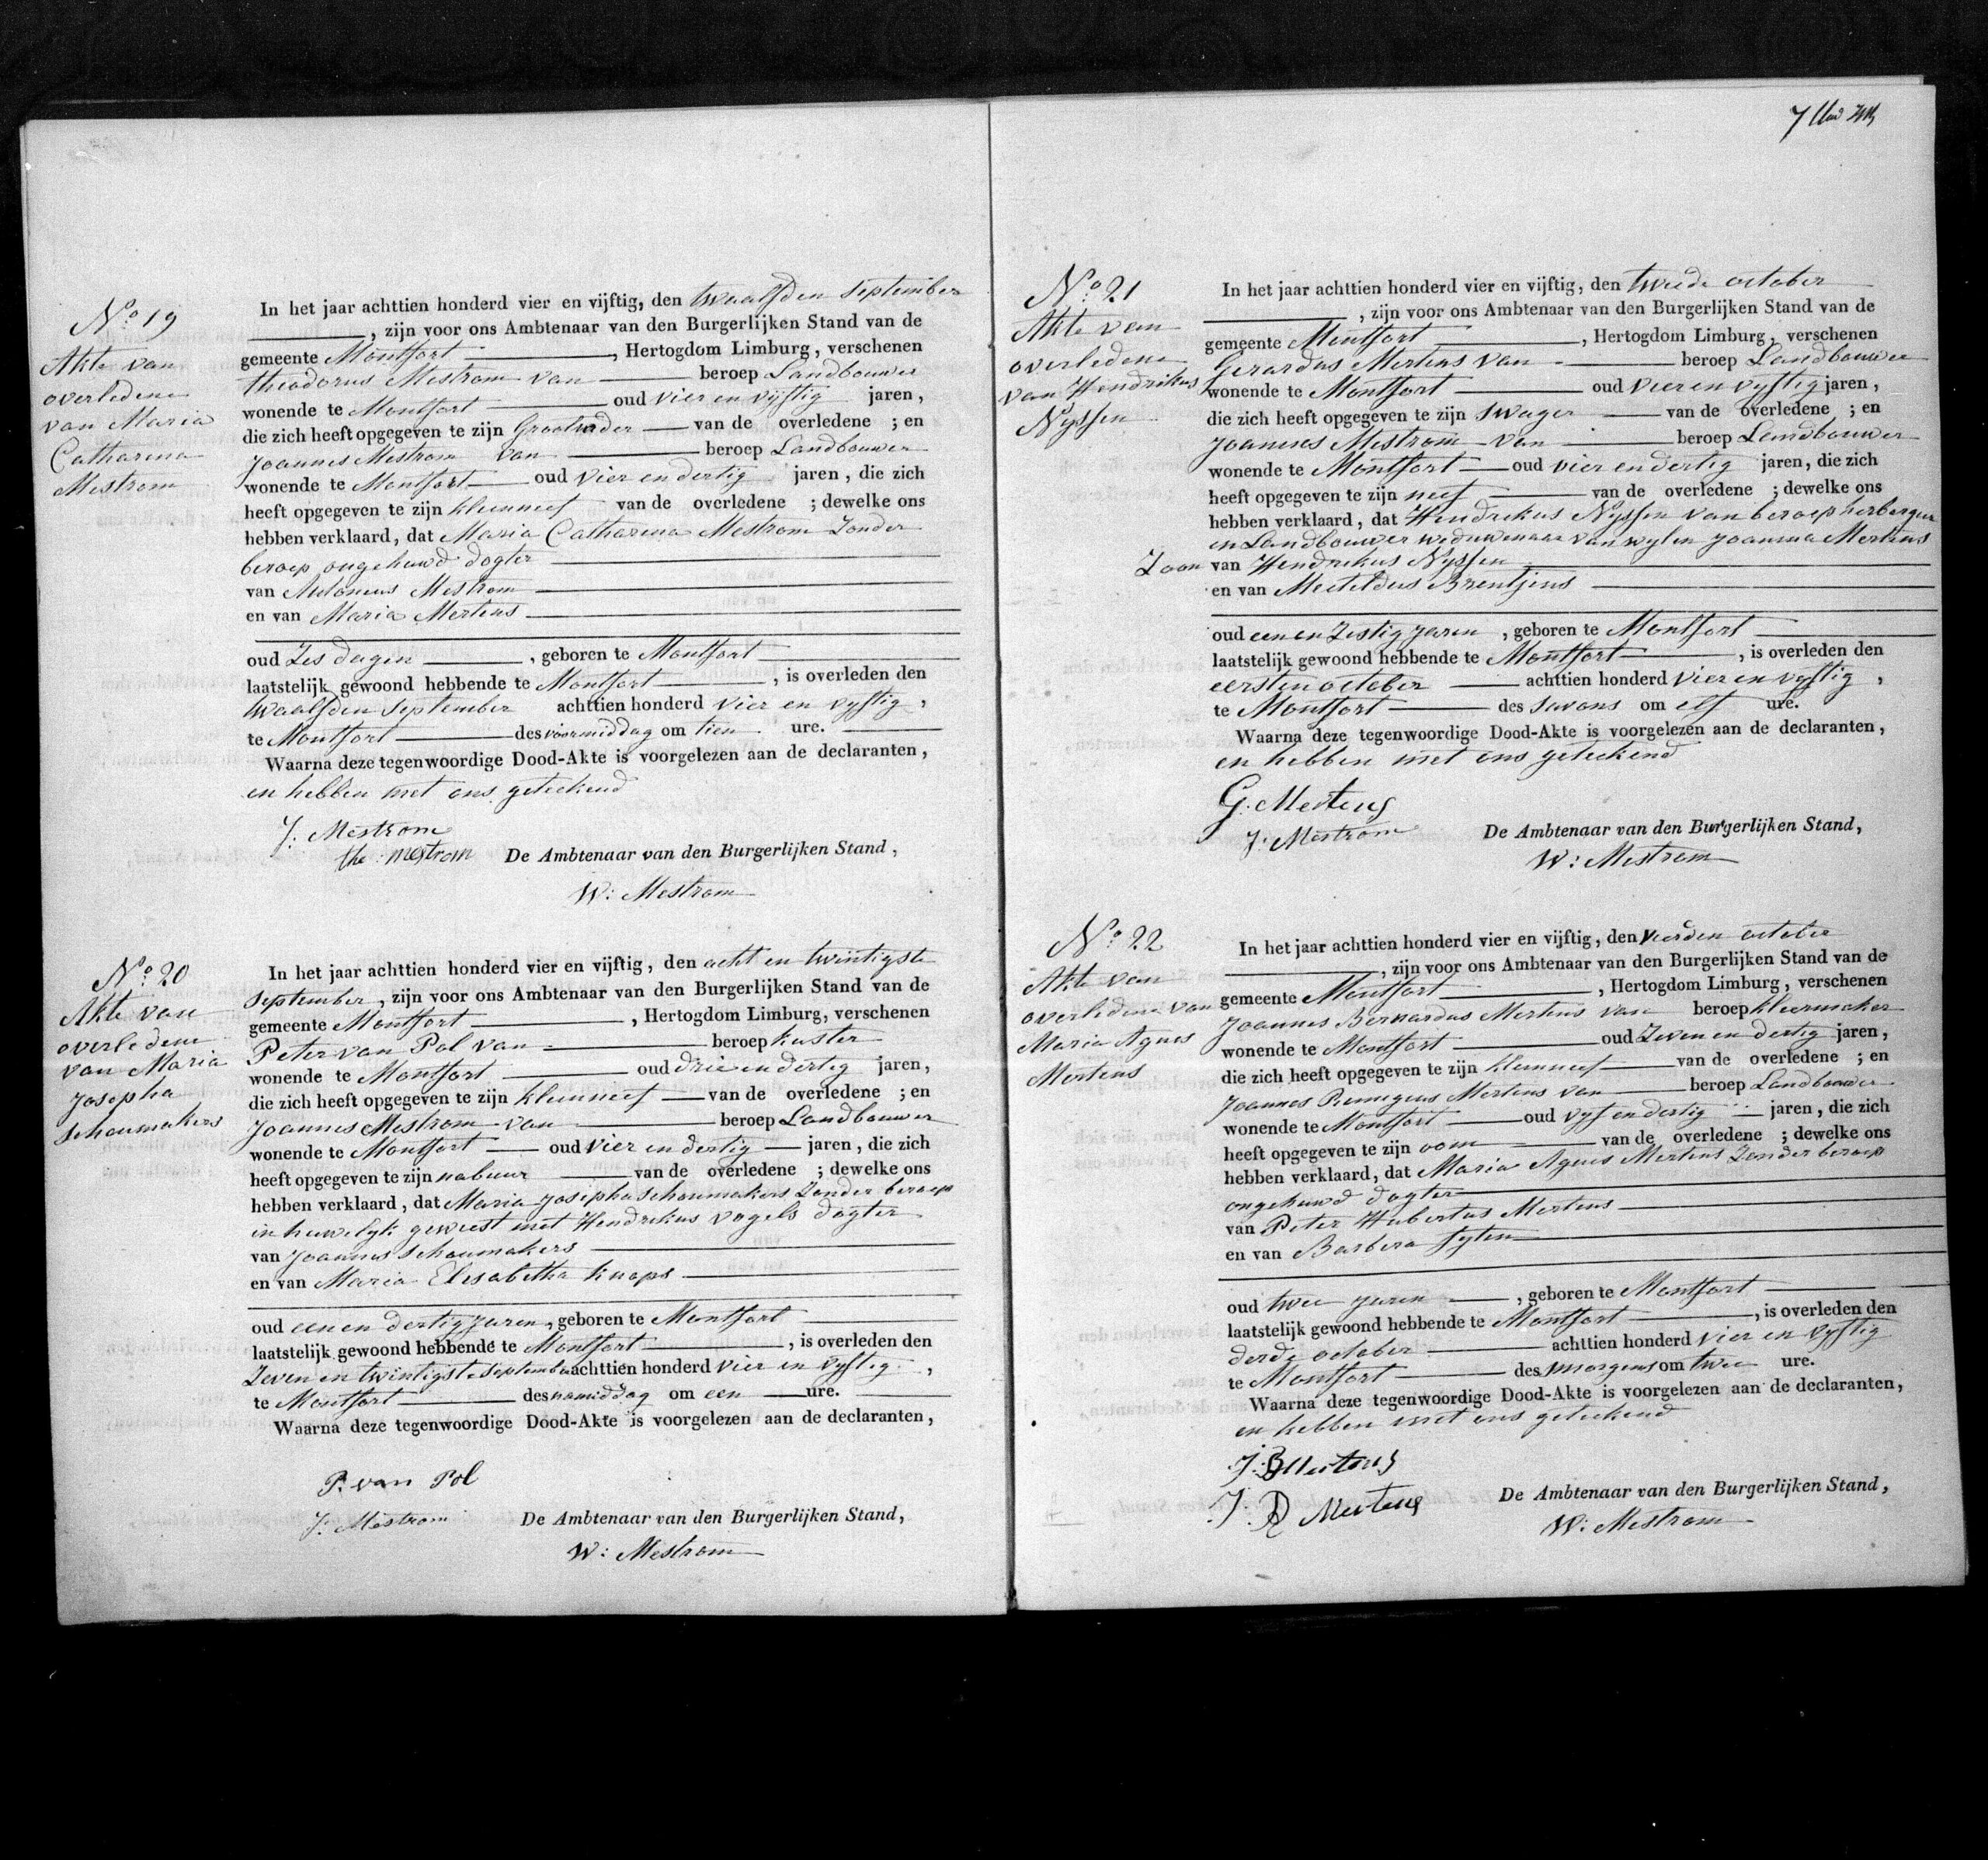 No 19
Akte van
overledene
van Maria
Catharina
Mestrom
In het jaar achttien honderd vier en vijftig, den twaalfden September
, zijn voor ons Ambtenaar van den Burgerlijken Stand van de
gemeente Montfort , Hertogdom Limburg, verschenen
theodorus Mestrom van beroep Landbouwer
wonende te Montfort oud vier en vyftig jaren,
die zich heeft opgegeven te zijn Grootvader van de overledene ; en
Joannes Mestrom van beroep Landbouwer
wonende te Montfort oud vier en dertig jaren, die zich
heeft opgegeven te zijn kleinneef van de overledene ; dewelke ons
hebben verklaard, dat Maria Catharina Mestrom Zonder
beroep ongehuwd dogter
van Antonius Mestrom
en van Maria Mertens
oud Zes dagen , geboren te Montfort
laatstelijk gewoond hebbende te Montfort , is overleden den
twaalfden September achttien honderd vier en vyftig ,
te Montfort des voormiddag om tien ure.
Waarna deze tegenwoordige Dood-Akte is voorgelezen aan de declaranten,
en hebben met ons geteekend
J: Mestrom
the: mestrom De Ambtenaar van den Burgerlijken Stand,
W: Mestrom
No 20
Akte van
overledene
van Maria
Josepha
Schoumakers
In het jaar achttien honderd vier en vijftig, den acht en twintigste
September, zijn voor ons Ambtenaar van den Burgerlijken Stand van de
gemeente Montfort , Hertogdom Limburg, verschenen
Peter van Pol van beroep kuster
wonende te Montfort oud drie en dertig jaren,
die zich heeft opgegeven te zijn kleinneef van de overledene ; en
Joannes Mestrom van beroep Landbouwer
wonende te Montfort oud vier en dertig jaren, die zich
heeft opgegeven te zijn nabuur van de overledene ; dewelke ons
hebben verklaard, dat Maria Josepha Schoumakers Zonder beroep
in huwelyk geweest met Hendrikus Vogels dogter
van Joannes Schoumakers
en van Maria Elisabetha Knops
oud een en dertig jaren, geboren te Montfort
laatstelijk gewoond hebbende te Montfort , is overleden den
Zeven en twintigste September achttien honderd vier en vyftig ,
te Montfort des namiddag om een ure.
Waarna deze tegenwoordige Dood-Akte is voorgelezen aan de declaranten,
P. van Pol
J: Mestrom De Ambtenaar van den Burgerlijken Stand,
W: Mestrom
7
No 21
Akte van
overledene
van Hendrikus
Nyssen
In het jaar achttien honderd vier en vijftig, den tweede october
, zijn voor ons Ambtenaar van den Burgerlijken Stand van de
gemeente Montfort , Hertogdom Limburg, verschenen
Gerardus Mertens van beroep Landbouwer
wonende te Montfort oud vier en vyftig jaren,
die zich heeft opgegeven te zijn swager van de overledene ; en
Joannes Mestrom van beroep Landbouwer
wonende te Montfort oud vier en dertig jaren, die zich
heeft opgegeven te zijn neef van de overledene ; dewelke ons
hebben verklaard, dat Hendrikus Nyssen van beroep herbergier
en Landbouwer weduwenaar van wylen Joanna Mertens
Zoon van Hendrikus Nyssen
en van Mectildus Brentjens
oud een en Zestig jaren , geboren te Montfort
laatstelijk gewoond hebbende te Montfort , is overleden den
eersten october achttien honderd vier en vyftig ,
te Montfort des savons om elf ure.
Waarna deze tegenwoordige Dood-Akte is voorgelezen aan de declaranten,
en hebben met ons geteekend
G. Mertens
J: Mestrom De Ambtenaar van den Burgerlijken Stand,
W: Mestrom
No 22
Akte van
overledene van
Maria Agnes
Mertens
In het jaar achttien honderd vier en vijftig, den vierden october
, zijn voor ons Ambtenaar van den Burgerlijken Stand van de
gemeente Montfort , Hertogdom Limburg, verschenen
Joannes Bernardus Mertens van beroep kleermaker
wonende te Montfort oud Zeven en dertig jaren,
die zich heeft opgegeven te zijn kleinneef van de overledene ; en
Joannes Remegeus Mertens van beroep Landbouwer
wonende te Montfort oud vyf en dertig jaren, die zich
heeft opgegeven te zijn oom van de overledene ; dewelke ons
hebben verklaard, dat Maria Agnes Mertens Zonder beroep
ongehuwd dogter
van Peter Hubertus Mertens
en van Barbera Syten
oud twee jaren , geboren te Montfort
laatstelijk gewoond hebbende te Montfort , is overleden den
derde october achttien honderd vier en vyftig
te Montfort des smorgens om twee ure.
Waarna deze tegenwoordige Dood-Akte is voorgelezen aan de declaranten,
en hebben met ons geteekend
J: B Mertens
J: R Mertens De Ambtenaar van den Burgerlijken Stand,
W: Mestrom